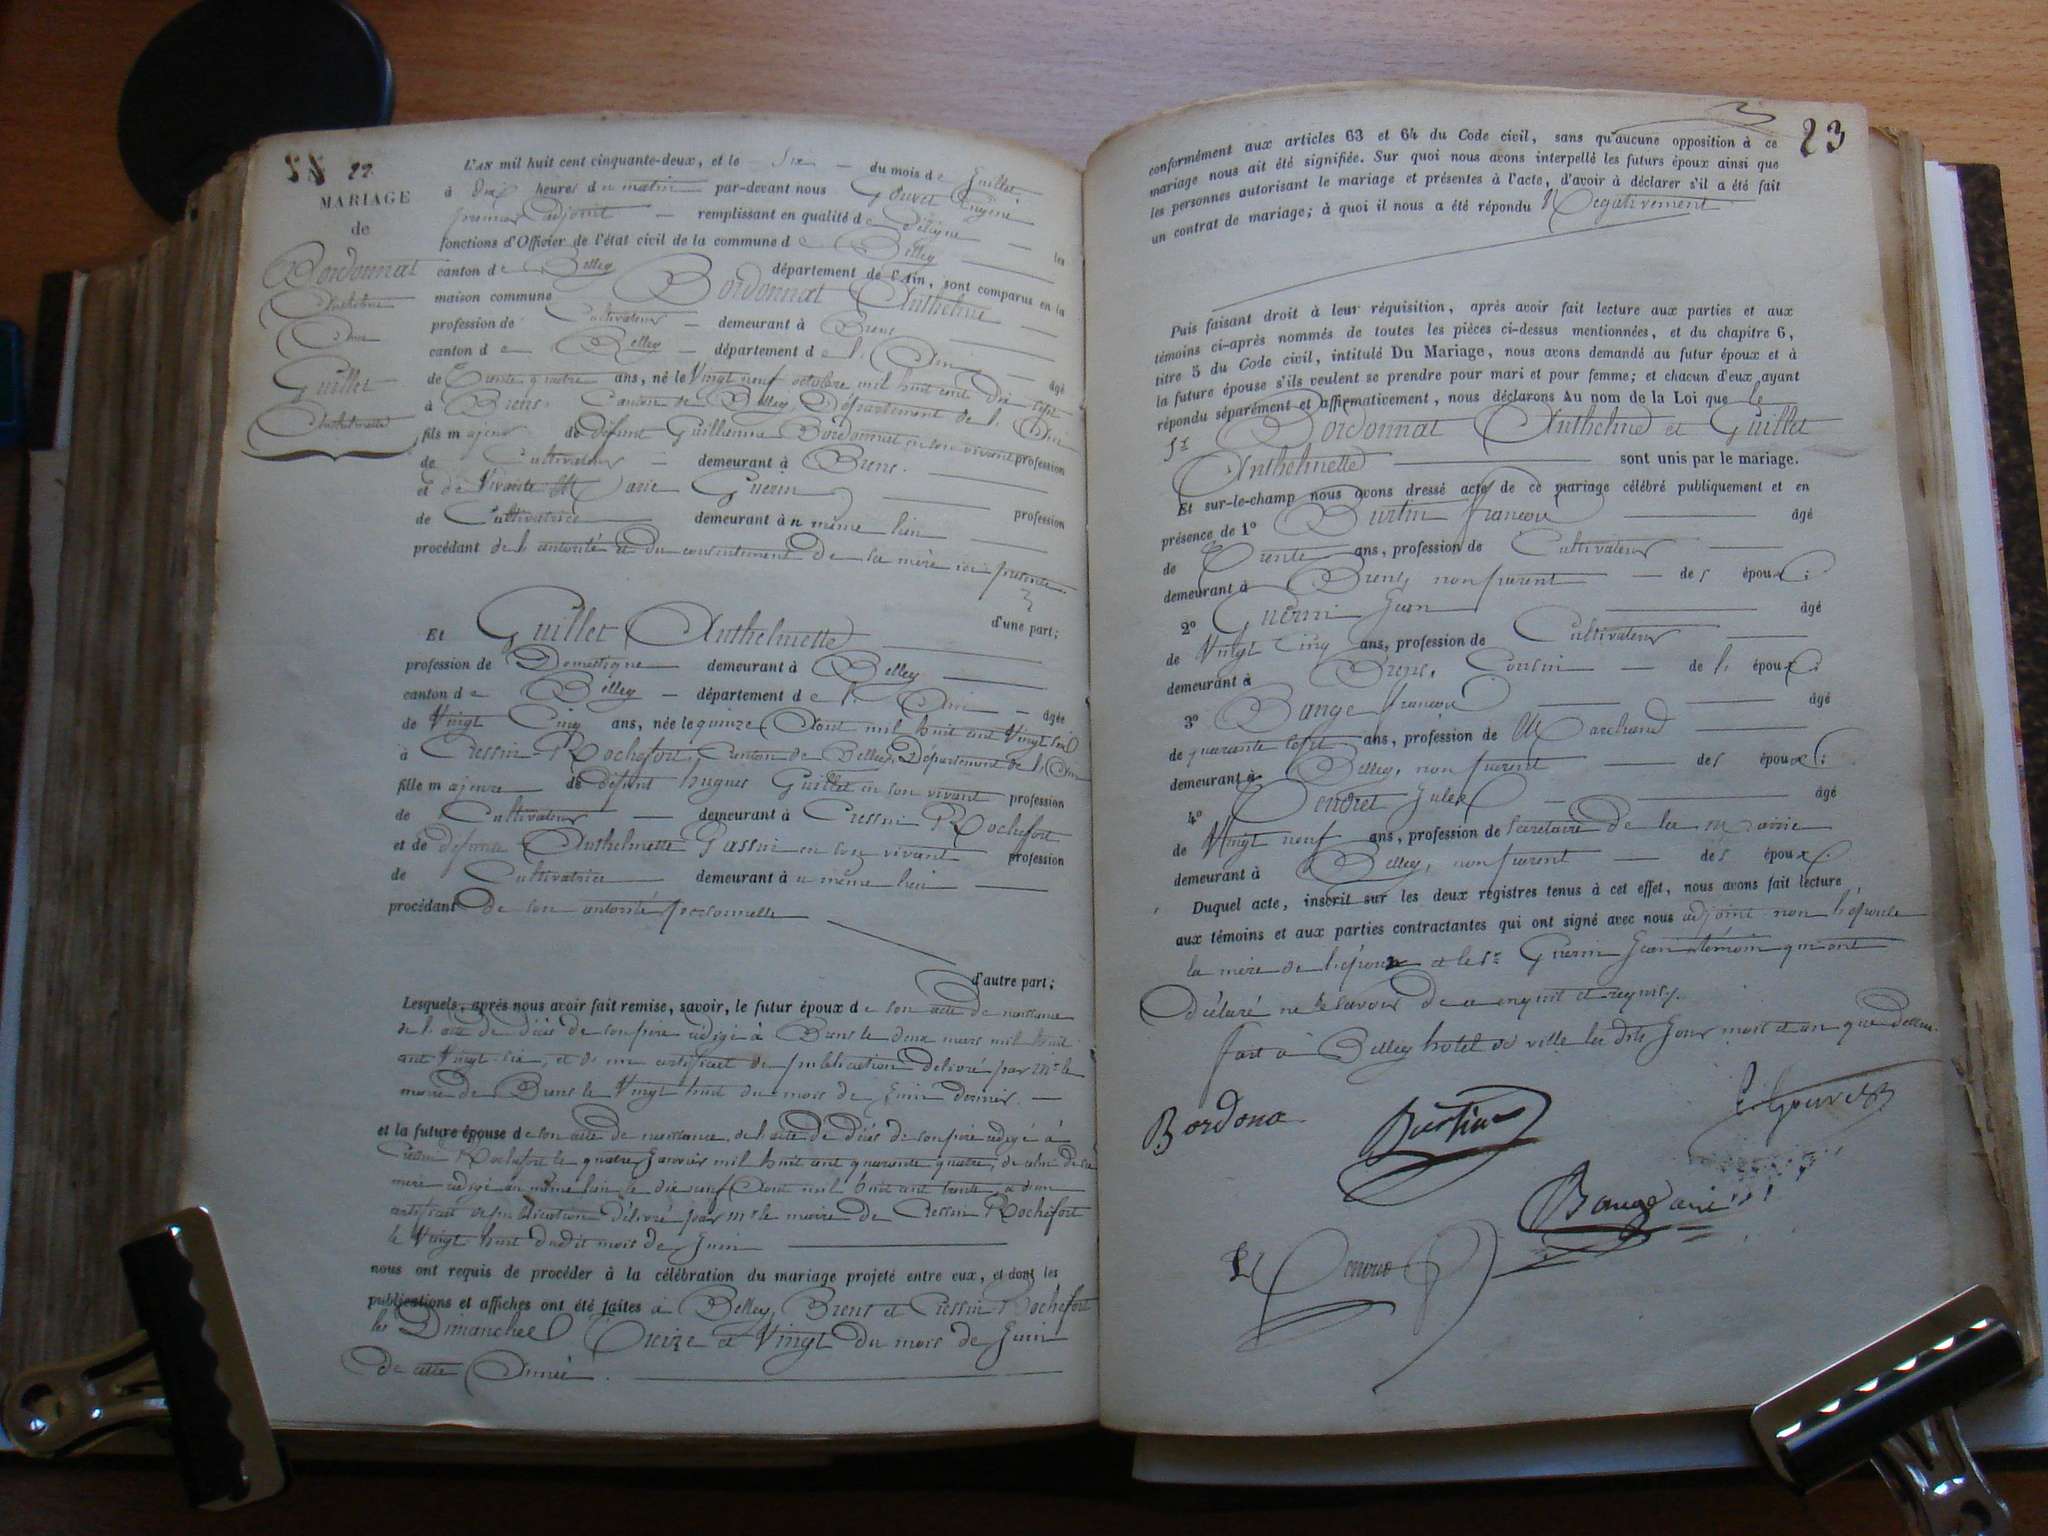 22
MARIAGE
de
Bordonnat
Anthelme
Avec
Guillet
Anthelmette
L'AN mil huit cent cinquante-deux, et le Six du mois de Juillet
à heures du matin par-devant nous Gouvet Eugène
premier adjoint remplissant en qualité de Délégué les
fonctions d'Officier de l'état civil de la commune de Belley
canton de Belley département de l'Ain, sont comparus en la
maison commune Bordonnat Anthelme
profession de Cultivateur demeurant à Brens
canton de Belley département de l'Ain âgé
de Trente quatre ans, né le Vingt neuf octobre mil huit cent dix sept
à Brens, Canton de Belley, Département de l'Ain
fils majeur de défunt Guillaume Bordonnat en son vivant profession
de Cultivateur demeurant à Brens.
et de Vivante Marie Guerin profession
de Cultivatrice demeurant au même lieu
procédant de l'autorité et du consentement de sa mère ici présente
d'une part;
Et Guillet Anthelmette
profession de Domestique demeurant à Belley
canton de Belley département de l'Ain âgée
de Vingt Cinq ans, née le quinze Aout mil huit cent Vingt six
à Cressin Rochefort, Canton de Belley, Département de l'Ain
fille majeure de défunt hugues Guillet en son vivant profession
de Cultivateur demeurant à Cressin Rochefort
et de défunte Anthelmette Gassin en son vivant profession
de Cultivatrice demeurant au même lieu
procédant de son autorité personnelle
d'autre part;
Lesquels, après nous avoir fait remise, savoir, le futur époux de son acte de naissance
de l'acte de décès de son père rédigé à Brens le deux mars mil huit
cent Vingt six, et de un certificat de publication délivré par Mr le
maire de Brens le Vingt huit du mois de Juin dernier.
et la future épouse de son acte de naissance, de l'acte de décès de son père rédigé à
Cressin Rochefort le quatre Janvier mil huit cent quarante quatre, de celui de sa
mère rédigé au même lieu le dix neuf Aout mil huit cent trente, et d'un
certificat de publication délivré par Mr le maire de Cressin Rochefort
le Vingt huit dudit mois de Juin
nous ont requis de procéder à la célébration du mariage projeté entre eux, et dont les
publications et affiches ont été faites à Belley, Brens et Cressin Rochefort
les Dimanches Treize et Vingt du mois de Juin
de cette Année.
23
conformément aux articles 63 et 64 du Code civil, sans qu'aucune opposition à ce
mariage nous ait été signifiée. Sur quoi nous avons interpellé les futurs époux ainsi que
les personnes autorisant le mariage et présentes à l'acte, d'avoir à déclarer s'il a été fait
un contrat de mariage; à quoi il nous a été répondu Négativement
Puis faisant droit à leur réquisition, après avoir fait lecture aux parties et aux
témoins ci-après nommés de toutes les pièces ci-dessus mentionnées, et du chapitre 6,
titre 5 du Code civil, intitulé Du Mariage, nous avons demandé au futur époux et à
la future épouse s'ils veulent se prendre pour mari et pour femme; et chacun d'eux ayant
répondu séparément et affirmativement, nous déclarons Au nom de la Loi que le
Sr Bordonnat Anthelme et Guillet
Anthelmette sont unis par le mariage.
Et sur-le-champ nous avons dressé acte de ce mariage célébré publiquement et en
présence de 1° Burtin françois âgé
de Trente ans, profession de Cultivateur
demeurant à Brens, non parent des époux;
2° Guerin Jean âgé
de Vingt Cinq ans, profession de Cultivateur
demeurant à Brens, Cousin de l'époux;
3° Bange françois âgé
de quarante sept ans, profession de Marchand
demeurant à Belley, non parent des époux;
4° Jules âgé
de Vingt neuf ans, profession de Secrétaire de la Mairie
demeurant à Belley, non parent des époux.
Duquel acte, inscrit sur les deux registres tenus à cet effet, nous avons fait lecture
aux témoins et aux parties contractantes qui ont signé avec nous adjoint non l'épouse
la mère de l'époux et le Sr Guerin Jean témoin qui ont
Déclaré ne le savoir de ce enquis et requis.
fait à Belley hotel de ville les dits Jour, mois et an que dessus.
Bordona
Burtin
E. Gouvet
Bange ainé